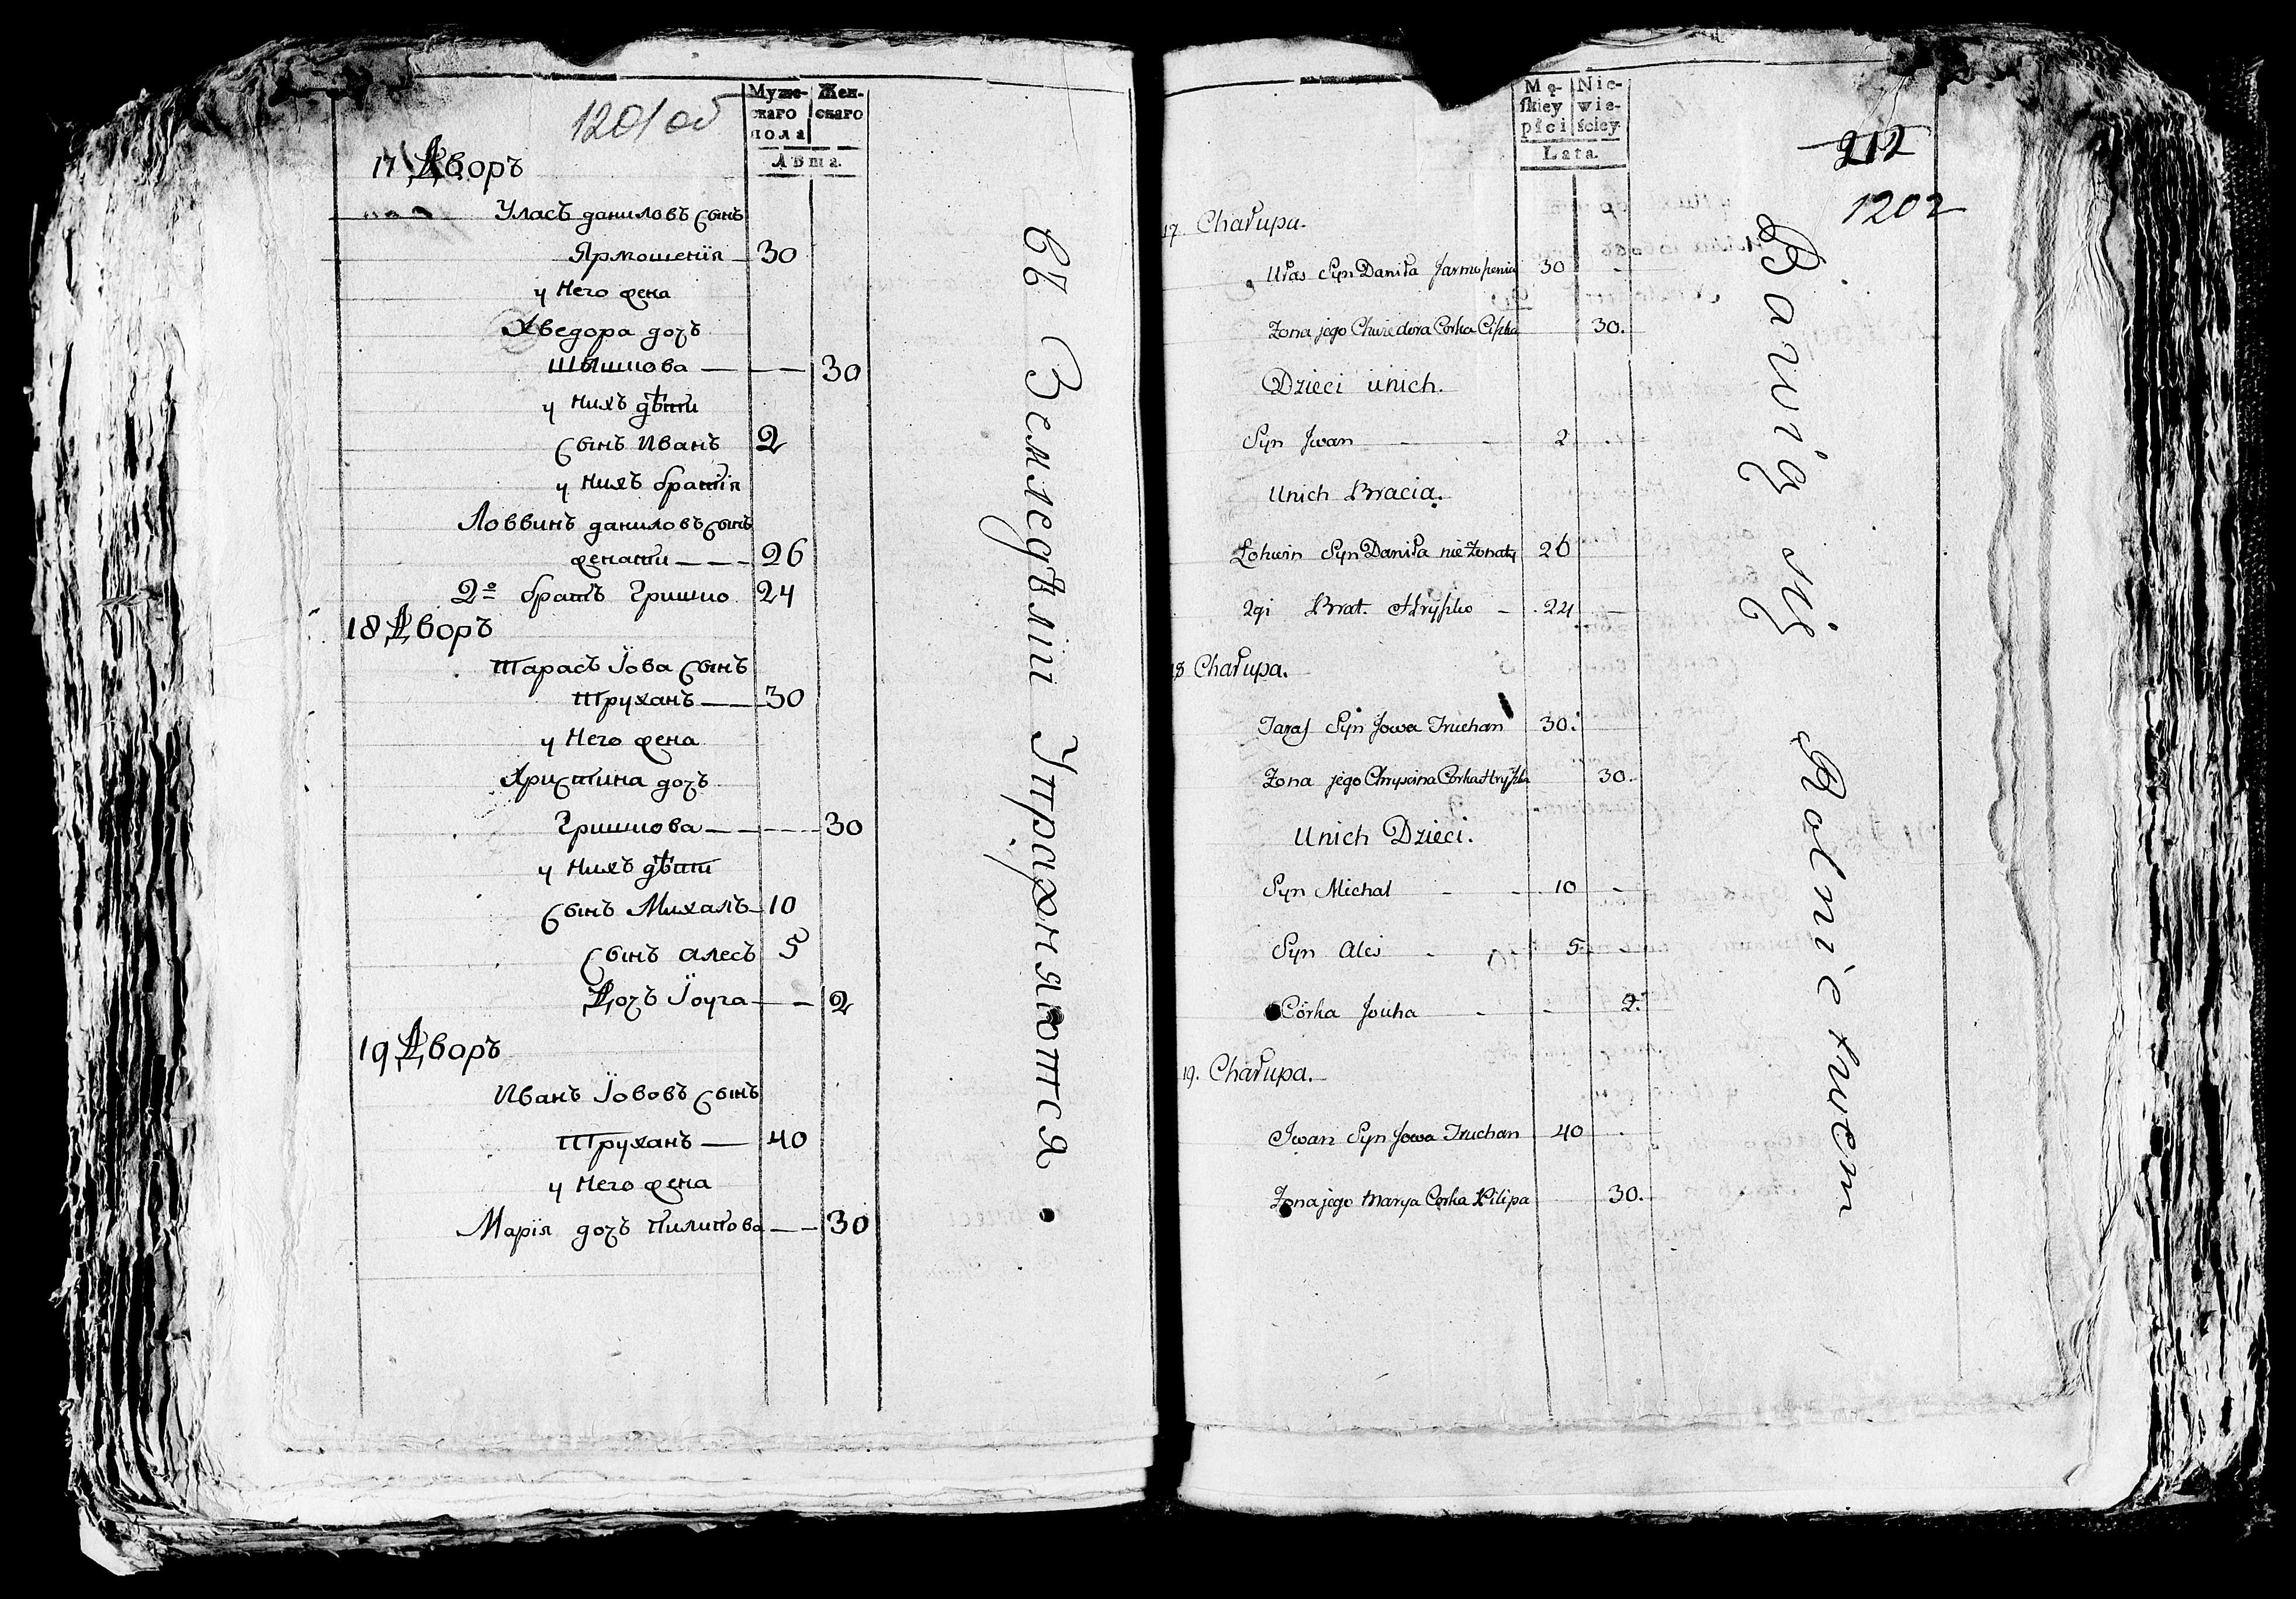 1201 об
Муже-
скаго
пола
Жен-
скаго
Лѣта
17 Дворъ
Уласъ даниловъ сынъ
Ярмошеня 30
у Него жена
Хведора дочъ
у нихъ дѣти
сынъ Иванъ 2
у нихъ братія
Ловвинъ даниловъ сынъ
женати — — — 26
2й братъ Гришко 24
18 Дворъ
Тарасъ Їова сынъ
Труханъ — — 30
у Него жена
Христина дочъ
Гришкова — — — 30
у нихъ дѣти
сынъ Михалъ 10
сынъ алесъ 5
Дочъ Їоуга — — 2
19 Дворъ
Иванъ Їововъ сынъ
Труханъ — 40
у Него жена
Марїя дочъ пилипова — — 30
въ Земледѣліи Упражняются.
Mę-
skiey
płci
Nie-
wie-
ściey
Lata.
212
1202
17. Chałupa.
Ułas Syn Daniła Jarmoszenia 30 -
Żona jego Chwiedora Corka 30.
Dzieci unich.
Syn Jwan - - 2
Unich Bracia.
Łohwin Syn Daniła nie Żonaty 26
2gi Brat. Hryszko - 24
18 Chałupa.
Taras Syn Jowa Truchan 30.
Żona jego Chryscina Corka Hryszka 30.
Unich Dzieci.
Syn Michał - - 10 -
Syn Ales - 5
Córka Jouha - - 2.
19. Chałupa.
Jwan Syn Jowa Truchan 40
Żona jego Marya Corka Pilipa 30.
Bawią się Rolnictwem